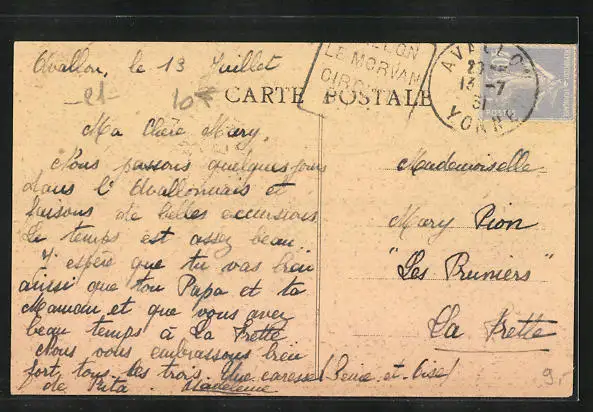 Avallon, le 13 Juillet
21
10
CARTE POSTALE
AVALLON
LE MORVAN
CIRC
AVALLON
20
13 -7
31
YONNE
POSTES
Ma Chère Mary,
Nous passons quelques jours
dans l'Avallonnais et
faisons de belles excursions
Le temps est assez beau..
J'espère que tu vas bien
ainsi que ton Papa et ta
Maman et que vous avez
beau temps à La Frette
Nous vous embrassons bien
fort tous les trois. Une caresse
de Madeleine
Mademoiselle
Mary Pion
"Les Pruniers"
La Frette
(Seine-et-Oise)
9